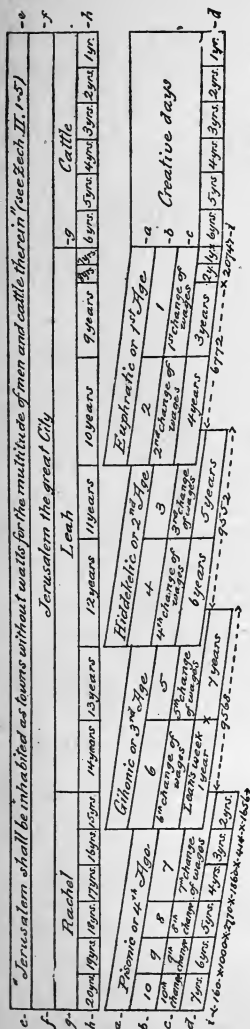 e- "Jerusalem shall be inhabited as towns without walls for the multitude of men and cattle therein" (see Zech. II. 1-5) -e
f- Jerusalem the great City -f
g- Rachel Leah -g Cattle
h- 20yrs. 19yrs. 18yrs. 17yrs. 16yrs. 15yrs. 14years 13years 12years 11years 10years 9years 6yrs. 5yrs. 4yrs. 3yrs. 2yrs. 1yr. -h
a- Pisonic or 4th Age Gihonic or 3rd Age Hiddekelic or 2nd Age Euphratic or 1st Age -a
b- 10 9 8 7 6 5 4 3 2 1 -b Creative days
c- 10th change 9th change 8th change 7th change of wages 6th change of wages 5th change of wages 4th change of wages 3rd change of wages 2nd change of wages 1st change of wages -c
Leah's week
d- 7yrs. 6yrs. 5yrs. 4yrs. 3yrs. 2yrs. 1year 7 years 6 years 5 years 4 years 3 years 2y 1yr. 6yrs. 5yrs. 4yrs. 3yrs. 2yrs. 1yr. -d
9568 9552 6772 20747-i